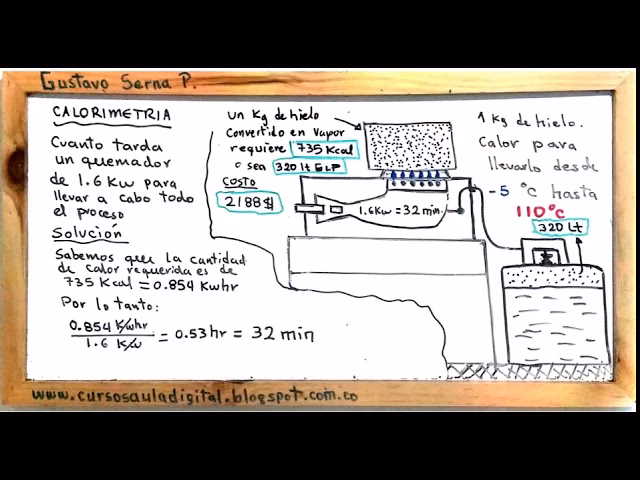 Gustavo Serna P.
CALORIMETRIA
Cuanto tarda
un quemador
de 1.6 Kw para
llevar a cabo todo
el proceso
Solución
Sabemos que la cantidad
de calor requerida es de
735 Kcal = 0.854 Kwhr
Por lo tanto:
0.854 Kwhr
1.6 Kw
= 0.53 hr = 32 min
un Kg de hielo
Convertido en Vapor
requiere 735 Kcal
o sea 320 lt GLP
COSTO
2188 $
1.6Kw = 32 min.
1 Kg de hielo.
Calor para
llevarlo desde
-5 °C hasta
110°C
320 Lt
www.cursosauladigital.blogspot.com.co